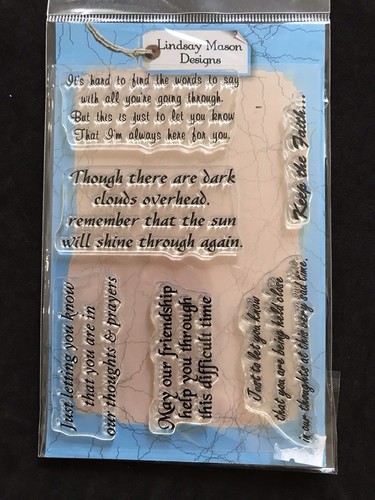 Lindsay Mason
Designs
It's hard to find the words to say
with all you're going through.
But this is just to let you know
That I'm always here for you.
Keep the Faith...
Though there are dark
clouds overhead.
remember that the sun
will shine through again.
Just letting you know
that you are in
our thoughts & prayers
May our friendship
help you through
this difficult time
Just to let you know
that you are being held close
in our thoughts at this very sad time.